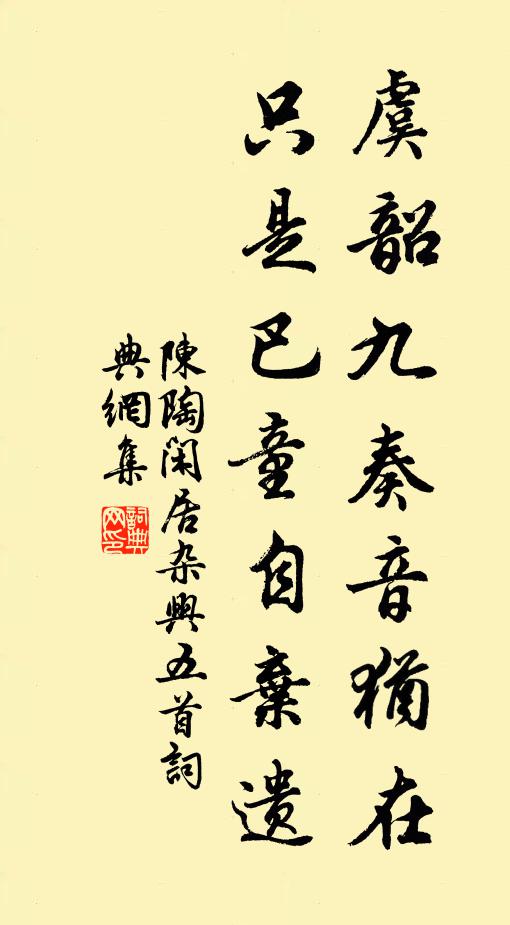 虞韶九奏音猶在
只是巴童自棄遺
陳陶閑居杂興五首詞
典網集
詞典
网印